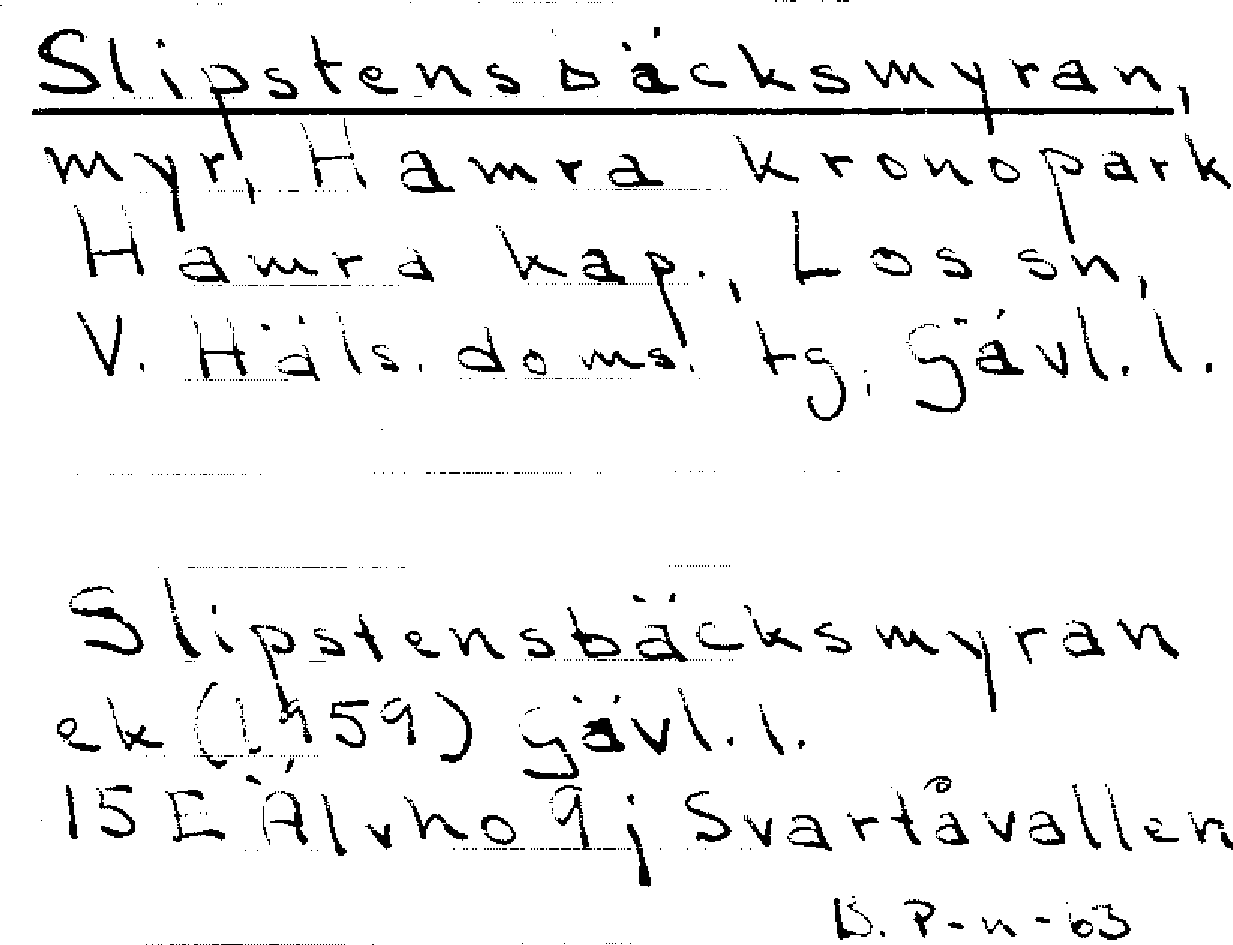 Slipstensbäcksmyran,
myr, Hamra kronopark
Hamra kap., Los sn,
V. Häls. doms. tg. Gävl. l.
Slipstensbäcksmyran
ek (1959) Gävl. l.
15 E Älvho 9 j Svartåvallen
B. P-n-63